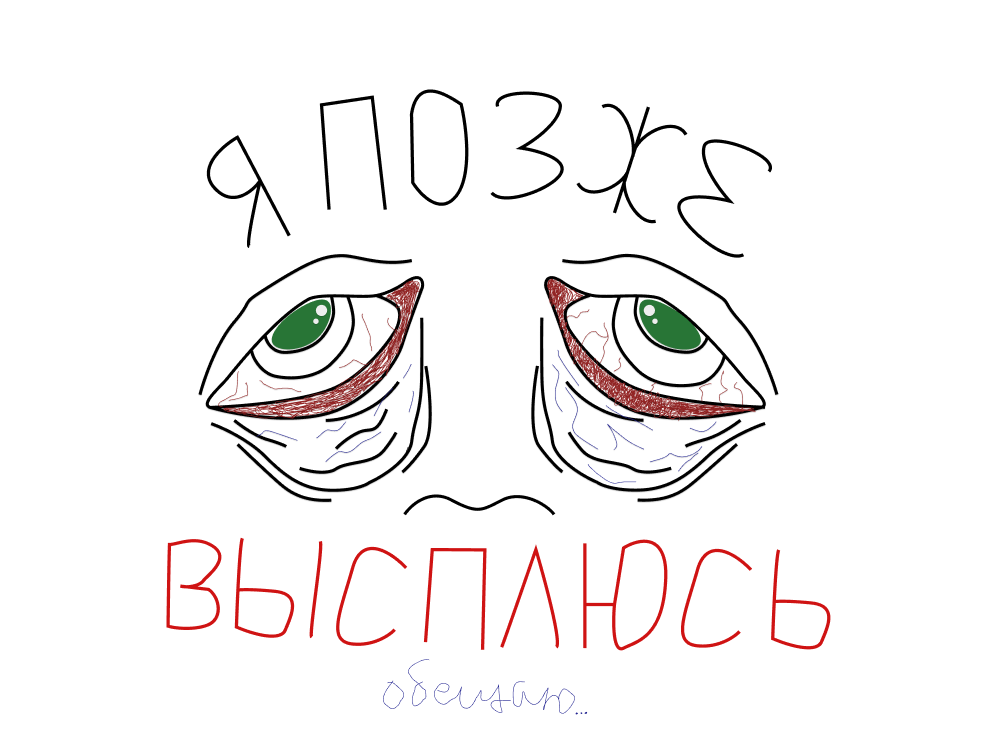 Я ПОЗЖЕ
ВЫСПЛЮСЬ
обещаю...